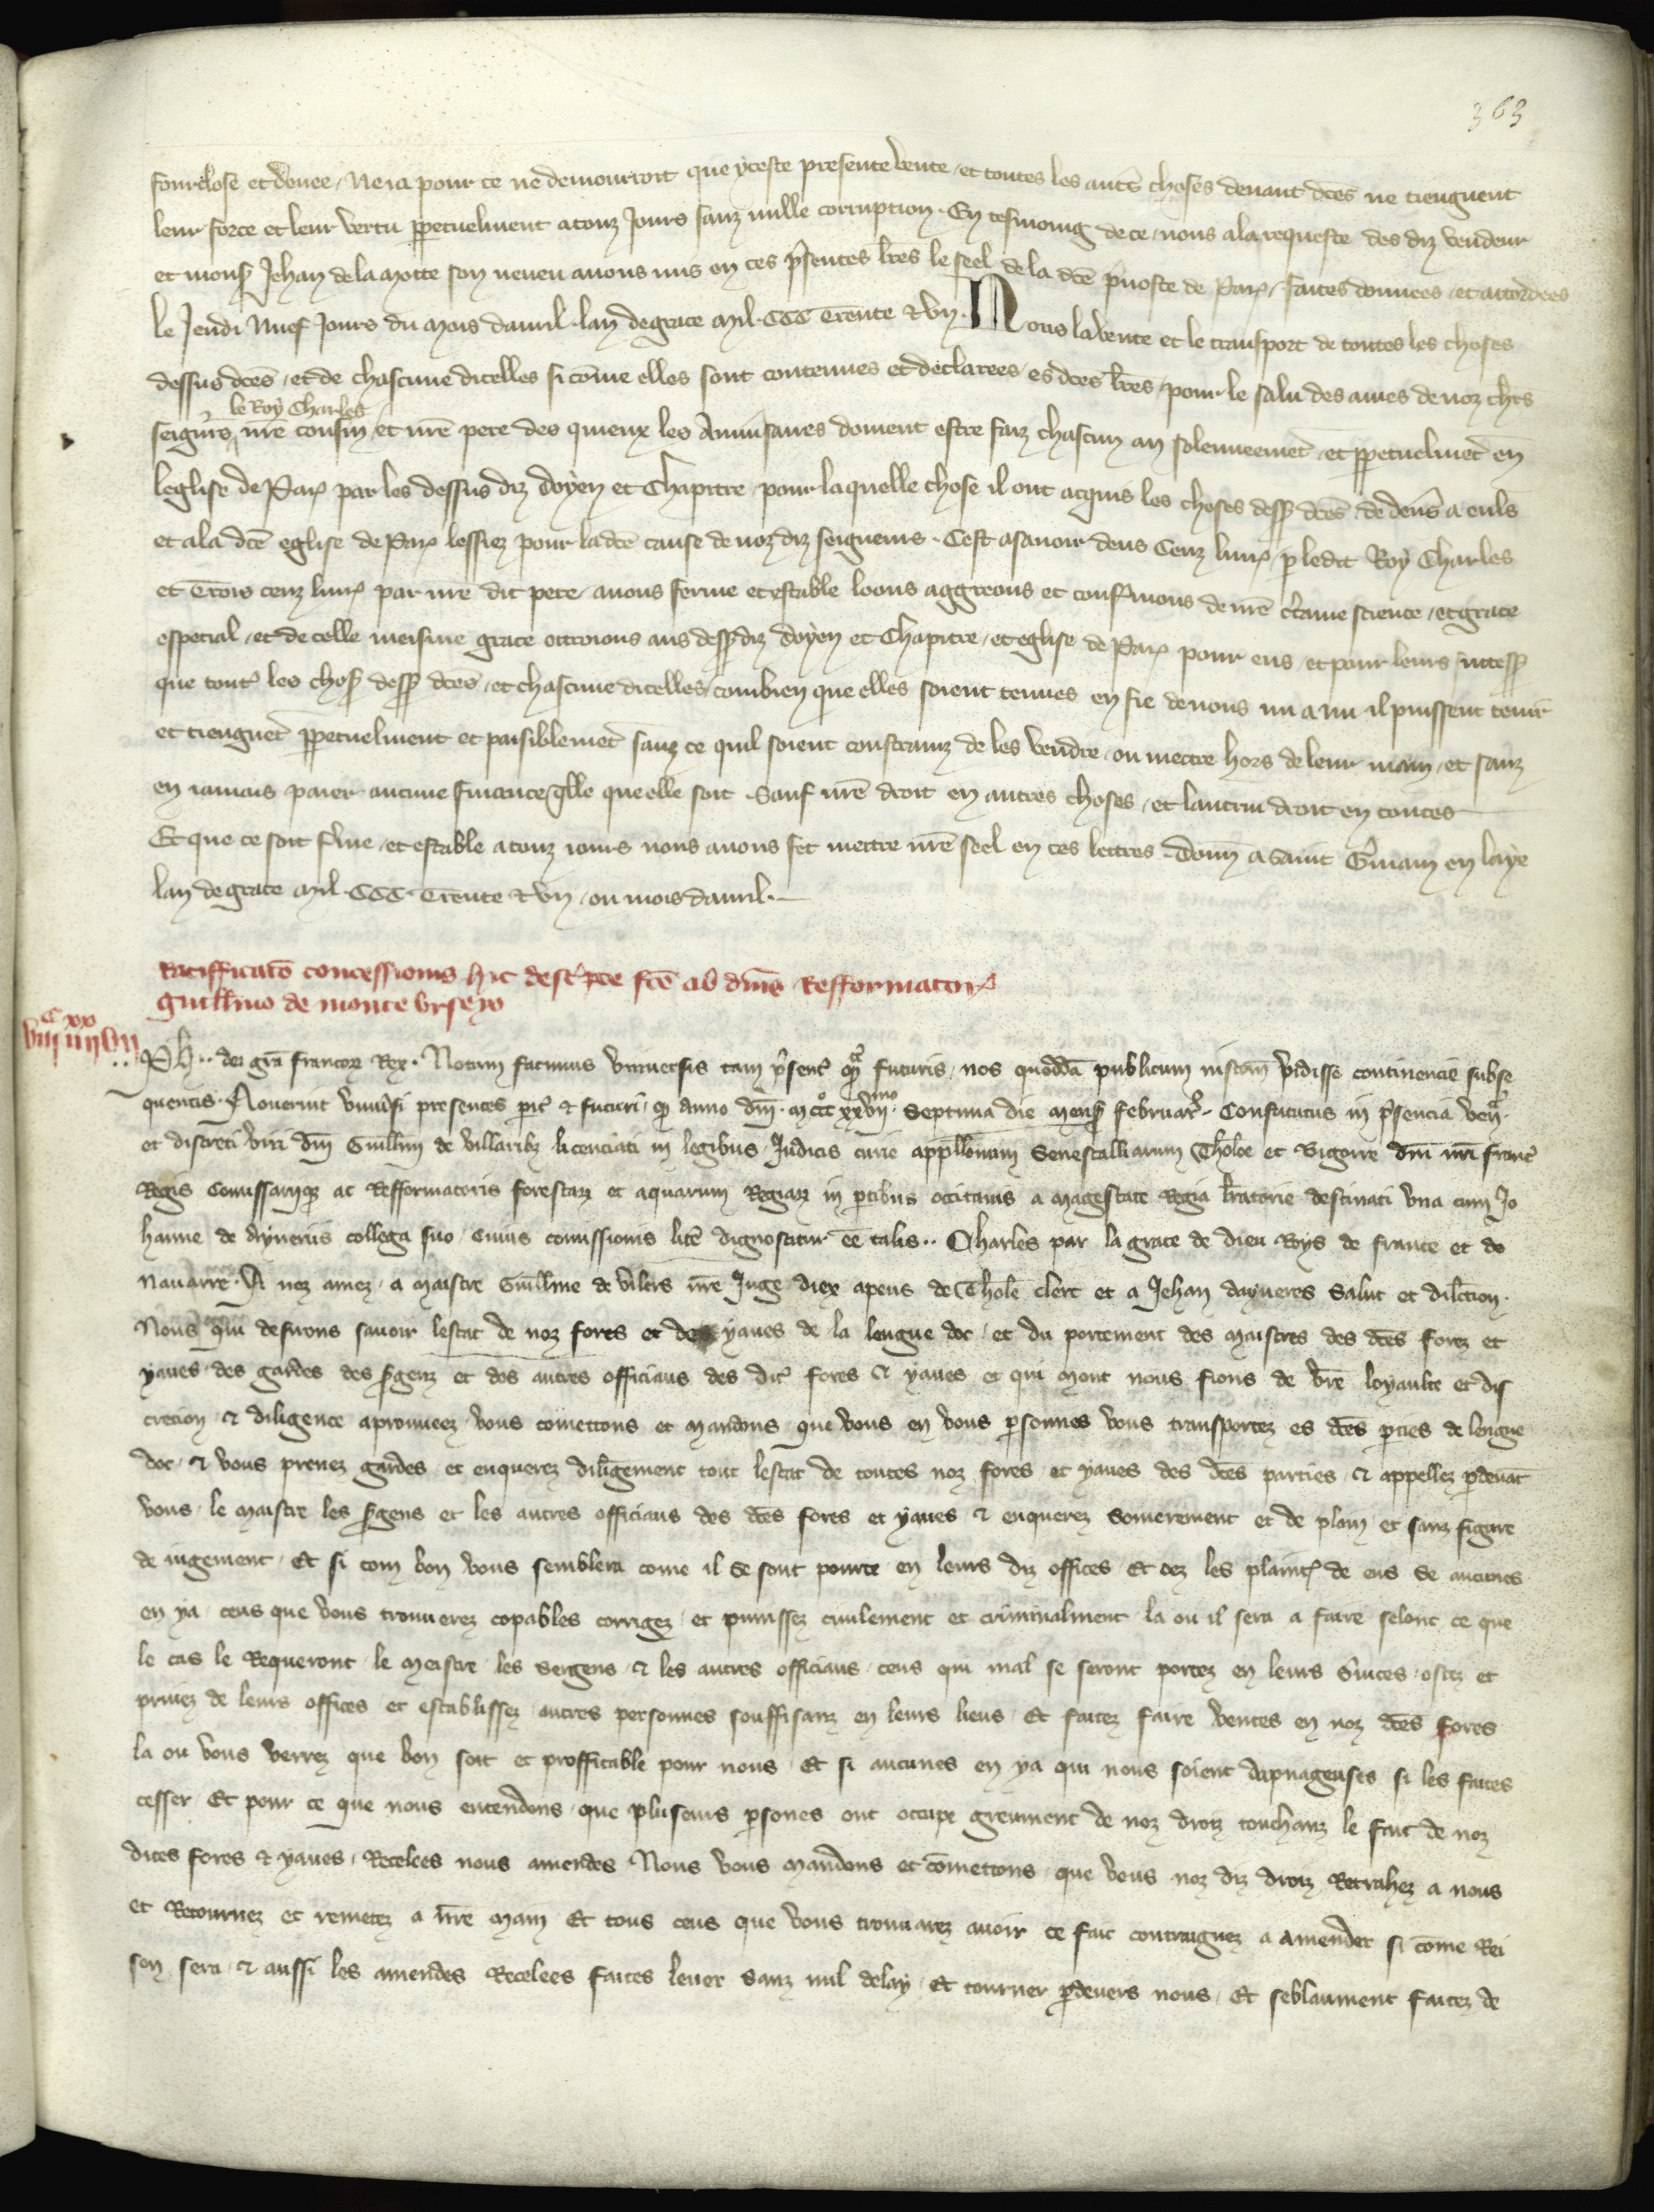 363
fourclose et donee / Ne ia pour ce ne demourroit que yceste presente vente / et toutes les autes choses deuant dces ne tieuguent
leur force et leur vertu ppetuelment a touz Jours sanz nulle corrupcion . En tesmoing de ce / nous a la requeste des diz vendeur
et mons Jehan de la Motte son neueu auons mis en ces psentes lres le seel de la dce puoste de Par / faites donnees / et accordees
le Jeudi Nuef Jours du Mois dauril . lan de grace Mil . CCC Trente & vn . Nous la vente et le transport de toutes les choses
dessus dces / et de chascune dicelles si come elles sont contenues et declarees / es dces lres / pour le salu des ames de noz chrs
le Roy Charles
seignrs nre cousin / et nre pere des quieux les Anniusaires doiuent estre faiz chascun an solenneemet / et ppetuelmet en
leglise de Par par les dessus diz doyen et Chapitre / pour laquelle chose il ont acquis les choses dess dces / de deners a euls
et a la dce eglise de Par lessiez pour la dce cause de noz diz seigneurs . Cest asauoir deus Cenz liur / p ledit Roy Charles
et Trois cenz liur par nre dit pere / auons ferme et estable loons aggreons et confmons de nre ctaine science / et grace
especial / et de celle meisme grace ottroions aus dess diz doyen et Chapitre / et eglise de Par pour eus / et pour leurs success
que tout les chos dess dces / et chascune dicelles / combien que elles soient tenues en fie de nous nu a nu il puissent tenir
et tieuguet ppetuelment et paisiblemet sanz ce quil soient constrainz de les vendre / ou mettre hors de leur main / et sanz
en iamais paier aucune finance qlle que elle soit . Sauf nre droit en autres choses / et lautrui droit en toutes
Et que ce soit fme / et estable a touz iours nous auons fet mettre nre seel en ces lettres . Donn a Saint Gmain en laye
lan de grace Mil . CCC . Trente & vn / ou mois dauril .
Ratifficato concessionis hic descpte fce ab dnis Refformator
Guillmo de monte vrseyo
C xx
viii iiii vii
Ph .. dei gra francor Rex . Notum facimus vniuersis tam psent qm futuris / nos quodda publicum instrm vidisse continencie subse
quentis . Nouerint vniusi presentes pit & futuri q anno dni . mcccxxvii mo . Septima die mens februar . Constitutus in psencia ven
et discreti viri dni Guillmi de villaribz licenciati in legibus Judicis curie appllonum Senescalliarum Tholoe et Bigorre dni nri franc
Regis Comissariiqz ac Refformatoris forestarz et aquarum Regiarz in ptibus occitanis a magestate Regia lratorie destinati vna cum Jo
hanne de Ayneriis collega suo / cuius comissionis litte dignoscitur ee talis .. Charles par la grace de dieu Roys de france et de
Nauarre . A noz amez . a maistre Guillme de vilers nre Juge diex apeus de Thole clerc et a Jehan dayneres Salut et dilcion .
Nous qui desirons sauoir lestat de noz fores et de yaues de la lengue doc / et du portement des maistres des dces forez et
yaues des gardes des sgenz et des autres officiaus des dit fores & yaues / et qui mont nous fions de vre loyaulte et dis
crecion & diligence aprouueez vous comettons et mandons que vous en vous psonnes vous transportez es dces pties de lengue
doc / & vous prenez gardes et enquerez diligement tout lestat de toutes noz fores et yaues des dces parties & appellez pdeuat
vous le maistre les sgens et les autres officiaus des dces fores et yaues & enquerez somerement et de plain et sanz figure
de iugement . Et si com bon vous semblera come il se sont pourte en leurs diz offices . Et oez les plaint de eus se aucunes
en ya / ceus que vous trouuerez copables corrigez et punissez ciuilement et criminalment la ou il sera a faire selonc ce que
le cas le Requeront / le meistre / les sergens & les autres officiaus / ceus qui mal se seront portez en leurs suices / ostez et
priuez de leurs offices et establissez autres personnes souffisanz en leurs lieus . Et faitez faire ventes en noz dces fores
la ou vous verrez que bon soit et proffitable pour nous . Et si aucunes en ya qui nous soient dapnageuses si les faites
cesser . Et pour ce que nous entendons que pluseurs psones ont occupe greument de noz droiz touchanz le fait de noz
dites fores & yaues . Recelees nous amendes Nous vous mandons et comettons que vous noz diz droiz Retrahez a nous
et Retournez et remetez a nre main Et tous ceus que vous trouuarez auoir ce fait contraignez a amender si come Rei
son sera & aussi les amendes Recelees faites leuer sanz nul delay . Et tourner pdeuers nous . Et seblaument faitez de